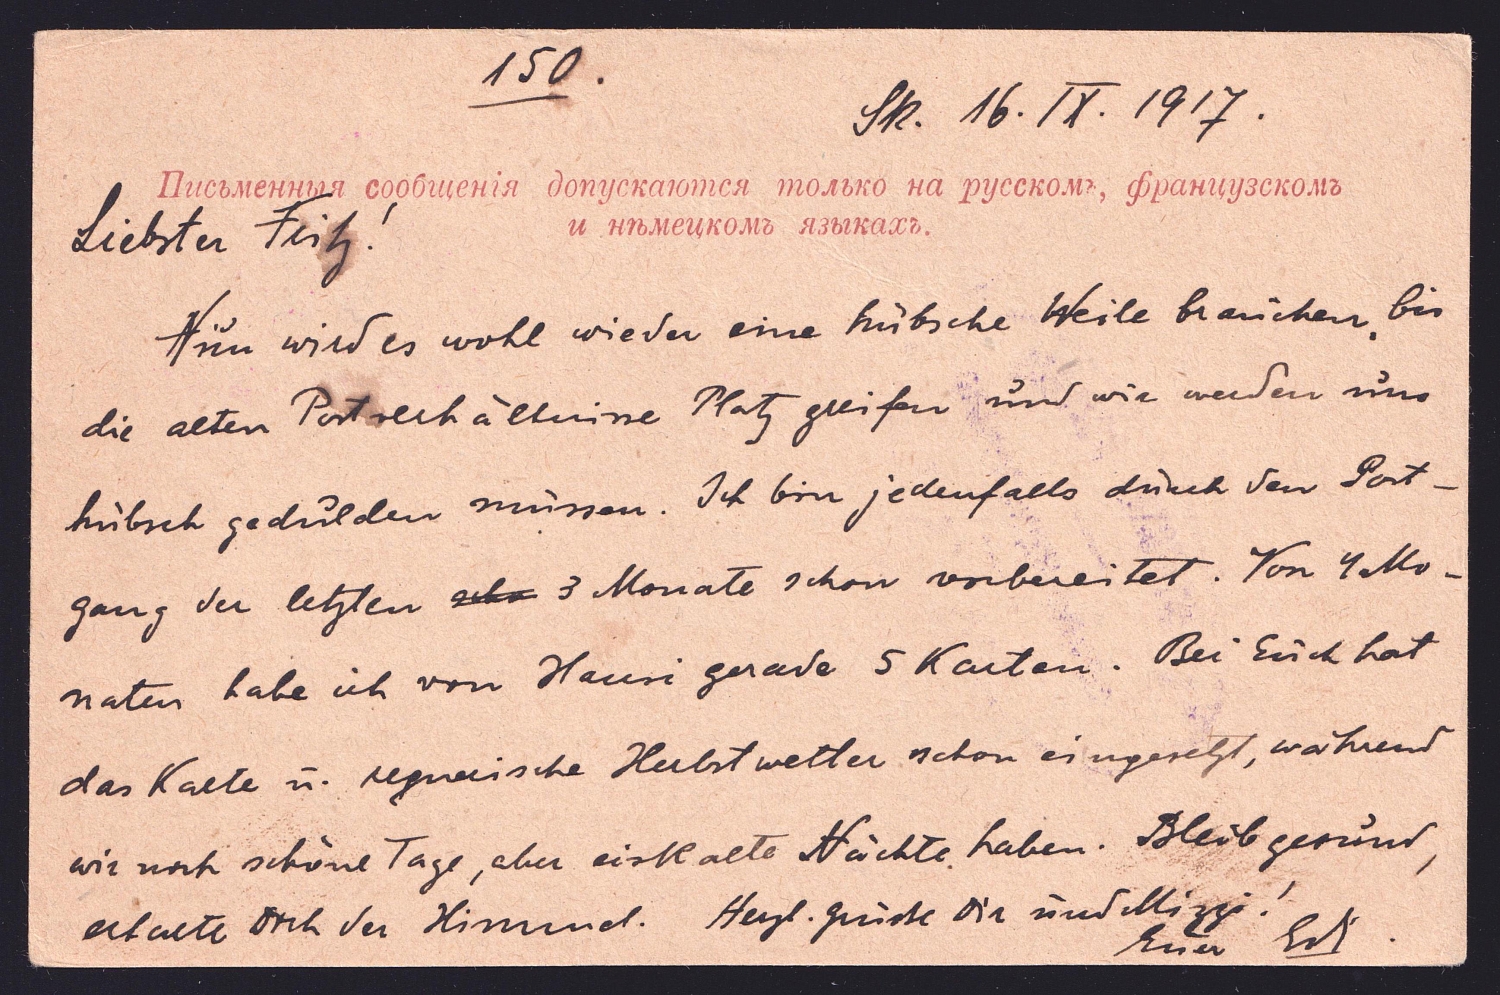 150.
Sk. 16. IX. 1917.
Письменныя сообщенія допускаются только на русскомъ, французскомъ
и нѣмецкомъ языкахъ.
Liebster Fritz!
Nun wird es wohl wieder eine hübsche Weile brauchen, bis
die alten Postverhältnisse Platz greifen und wir werden uns
hübsch gedulden müssen. Ich bin jedenfalls durch den Post-
gang der letzten 3 Monate schon vorbereitet. Von 4 Mo-
naten habe ich von Hansi gerade 5 Karten. Bei Euch hat
das Kalte u. regnerische Herbstwetter schon eingesetzt, während
wir noch schöne Tage, aber eiskalte Nächte haben. Bleib gesund,
erhalte Dich der Himmel. Herzl. grüsse Dir und Mizzi!
Euer Edi.